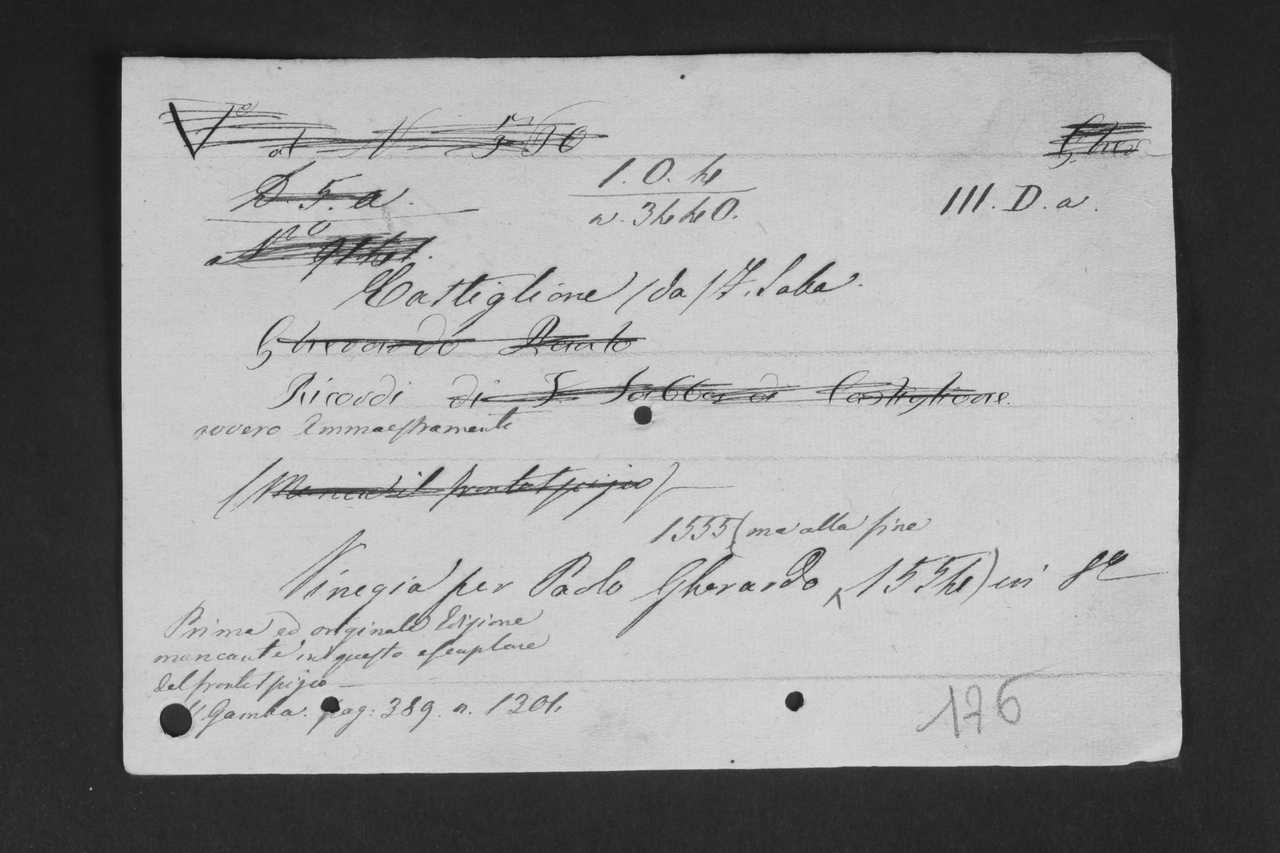 V.º al N 5190 Gher
D 5. a. 1. O. 4 III. D. a.
n. 3440.
Nº
Castiglione (da) F. Saba.
Gherardo Paulo
Ricordi di F Sabba di Castiglione.
ovvero Ammaestramenti
(Manca il frontespizio)
1555 (ma alla fine
Vinegia per Paolo Gherardo 1554) in 8º
Prima ed originale Edizione
mancante in questo esemplare
del frontespizio
V. Gamba. pag: 389. n. 1301.
176